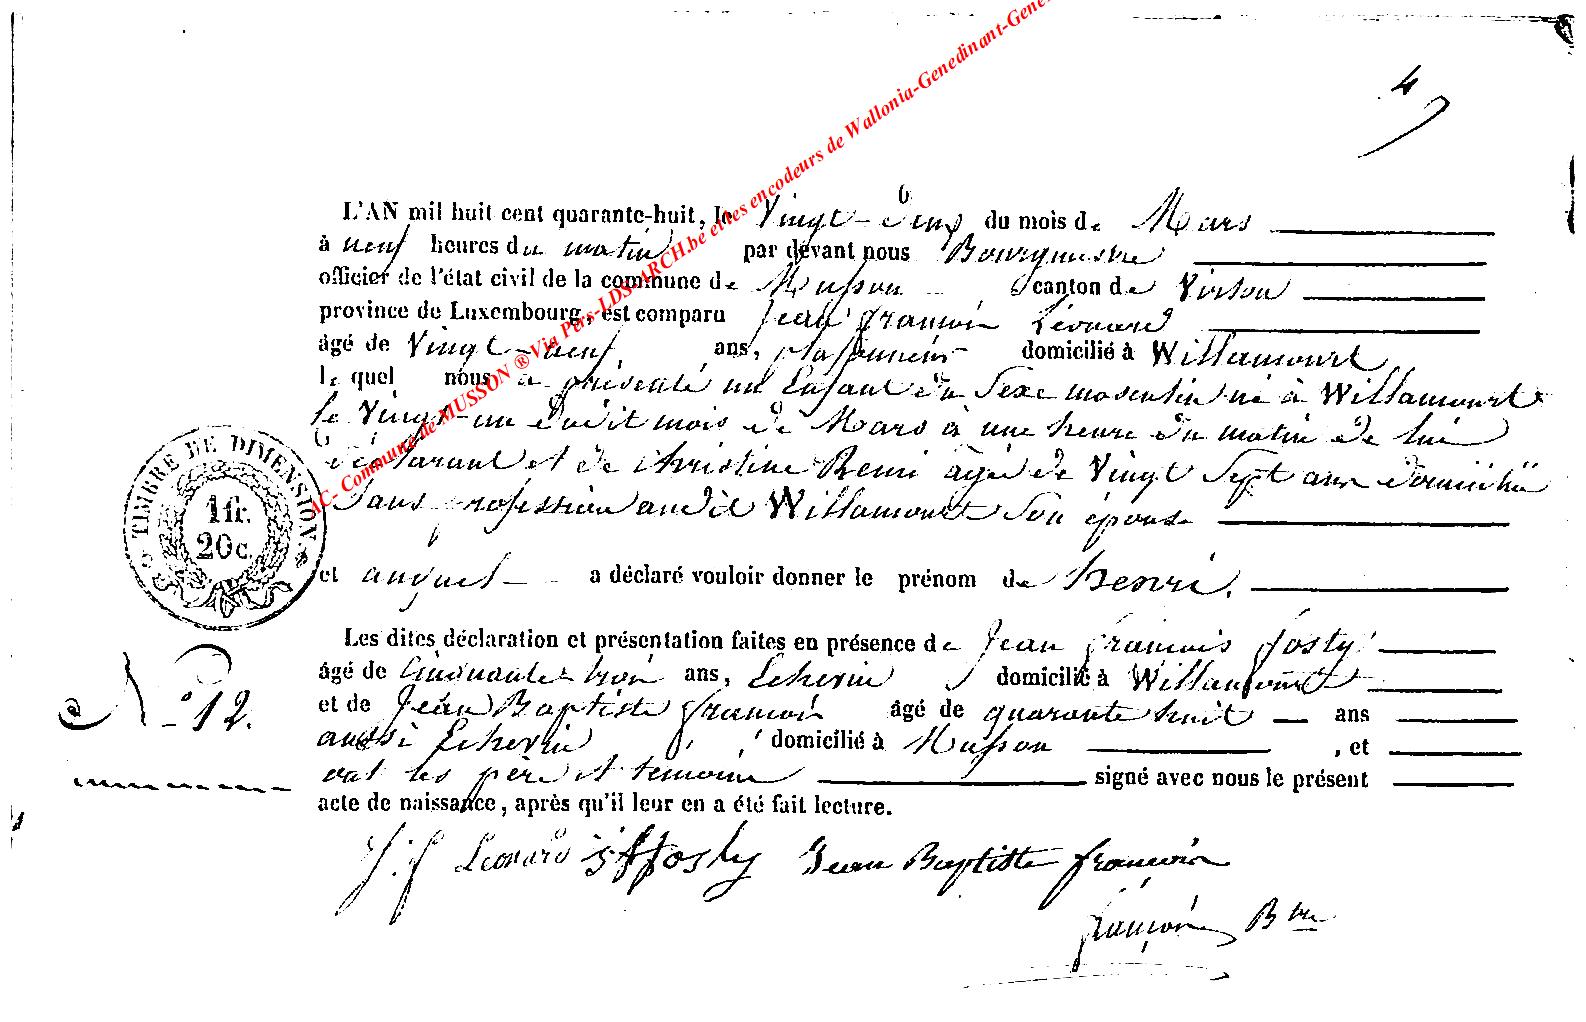 4
L'AN mil huit cent quarante-huit, le Vingt-deux du mois de Mars
à neuf heures du matin par devant nous Bourgmestre
officier de l'état civil de la commune de Musson canton de Virton
province de Luxembourg, est comparu Jean françois Léonard
âgé de Vingt-neuf ans, plafonneur domicilié à Willancourt
le quel nous a présenté un Enfant du Sexe masculin né à Willancourt
le Vingt-un dudit mois de Mars à une heure du matin de lui
déclarant et de Christine Remi âgée de Vingt Sept ans domiciliée
Sans profession audit Willancourt Son épouse
et auquel a déclaré vouloir donner le prénom de henri.
Les dites déclaration et présentation faites en présence de Jean françois fosty
âgé de Cinquante-trois ans, Echevin domicilié à Willancourt
et de Jean Baptiste françois âgé de quarante huit ans
aussi Echevin domicilié à Musson, et
ont les père et temoins signé avec nous le présent
acte de naissance, après qu'il leur en a été fait lecture.
J. f Leonard JF fosty Jean Baptiste françois
françois Bme
TIMBRE DE DIMENSION.
1 fr.
20 c.
N° 12.
AC- Commune de MUSSON ® Via Pers-LDS-ARCH.be et les encodeurs de Wallonia-Genedinant-Gene